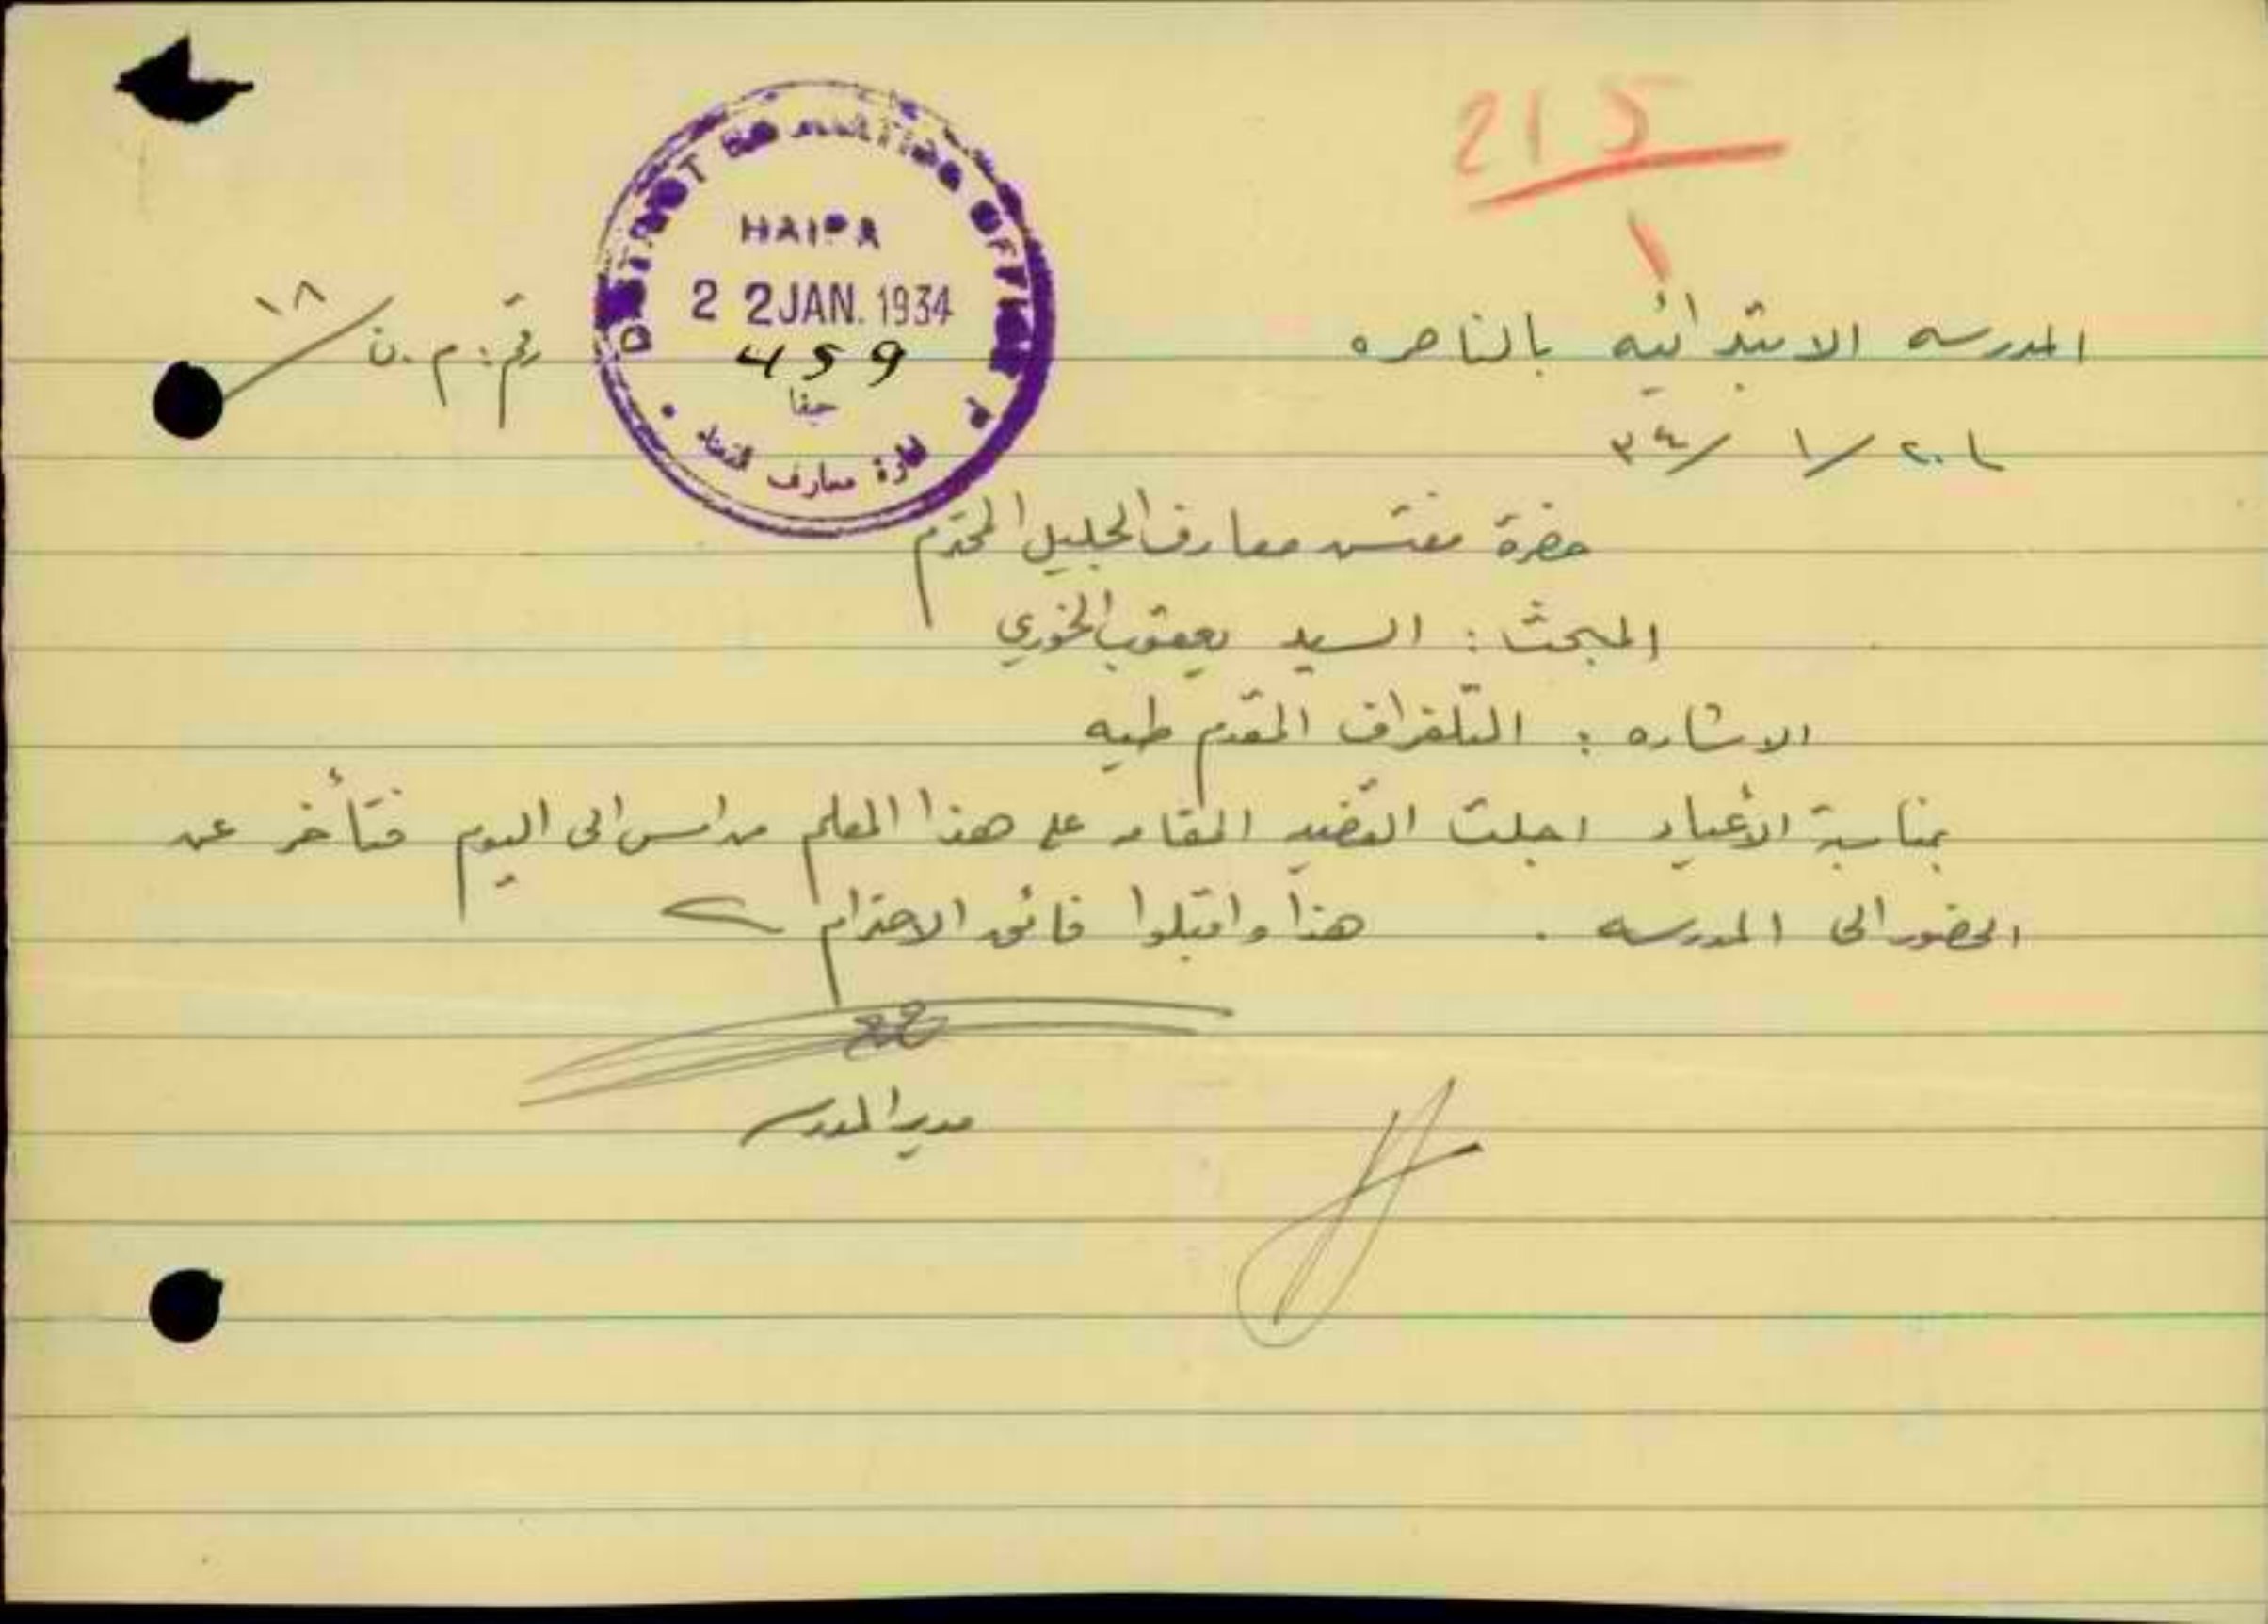 215
DISTRICT EDUCATION OFFICE
HAIFA
22 JAN. 1934
459
حيفا
ادارة معارف القضاء
المدرسه الابتدائيه بالناصره
رقم: م. ن / ١٨
٢٠ / ١ / ٣٤
حضرة مفتش معارف الجليل المحترم
المبحث: السيد يعقوب الخوري
الاشاره: التلغراف المقدم طيه
بمناسبة الأعياد اجلت القضيه المقامه على هذا المعلم من امس الى اليوم فتأخر عن
الحضور الى المدرسه . هذا واقبلوا فائق الاحترام
مدير المدرسه